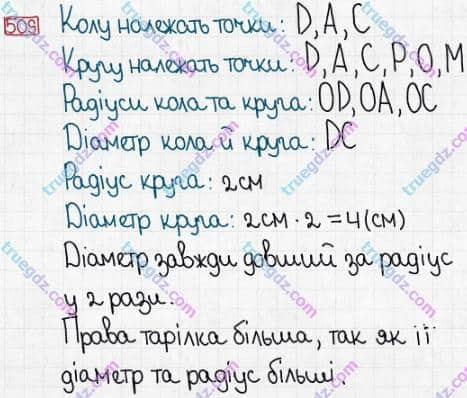 509 Колу належать точки: D, A, C
Кругу належать точки: D, A, C, P, O, M
Радіуси кола та круга: OD, OA, OC
Діаметр кола й круга: DC
Радіус круга: 2см
Діаметр круга: 2см · 2 = 4(см)
Діаметр завжди довший за радіус
у 2 рази.
Права тарілка більша, так як її
діаметр та радіус більші.
truegdz.com